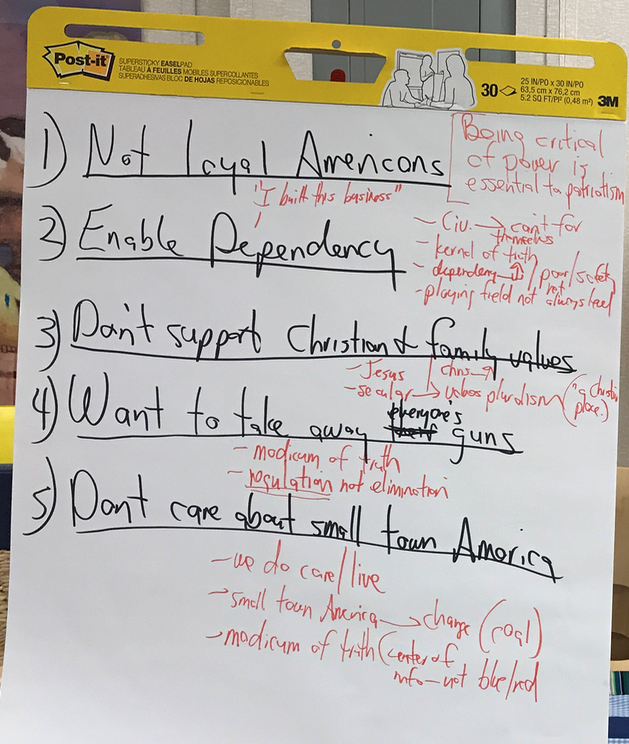 Post-it
SUPERSTICKY EASEL PAD
TABLEAU À FEUILLES MOBILES SUPERCOLLANTES
SUPERADHESIVAS BLOC DE HOJAS REPOSICIONABLES
30
25 IN/PO x 30 IN/PO
63,5 cm x 76,2 cm
5.2 SQ FT/PI² (0,48 m²)
3M
1) Not loyal Americans
Being critical
of power is
essential to patriotism
"I built this business"
2) Enable Dependency
- Civ. → can't for
themselves
- kernel of truth
- dependency / poor/safety
net
- playing field not always level
3) Don't support Christian & family values
- Jesus
- secular → values pluralism ("a Christian
place.)
4) Want to take away everyone's guns
- modicum of truth
- regulation not elimination
5) Dont care about small town America
- we do care/live
→ small town America → change (coal)
→ modicum of truth (center of
info - not blue/red